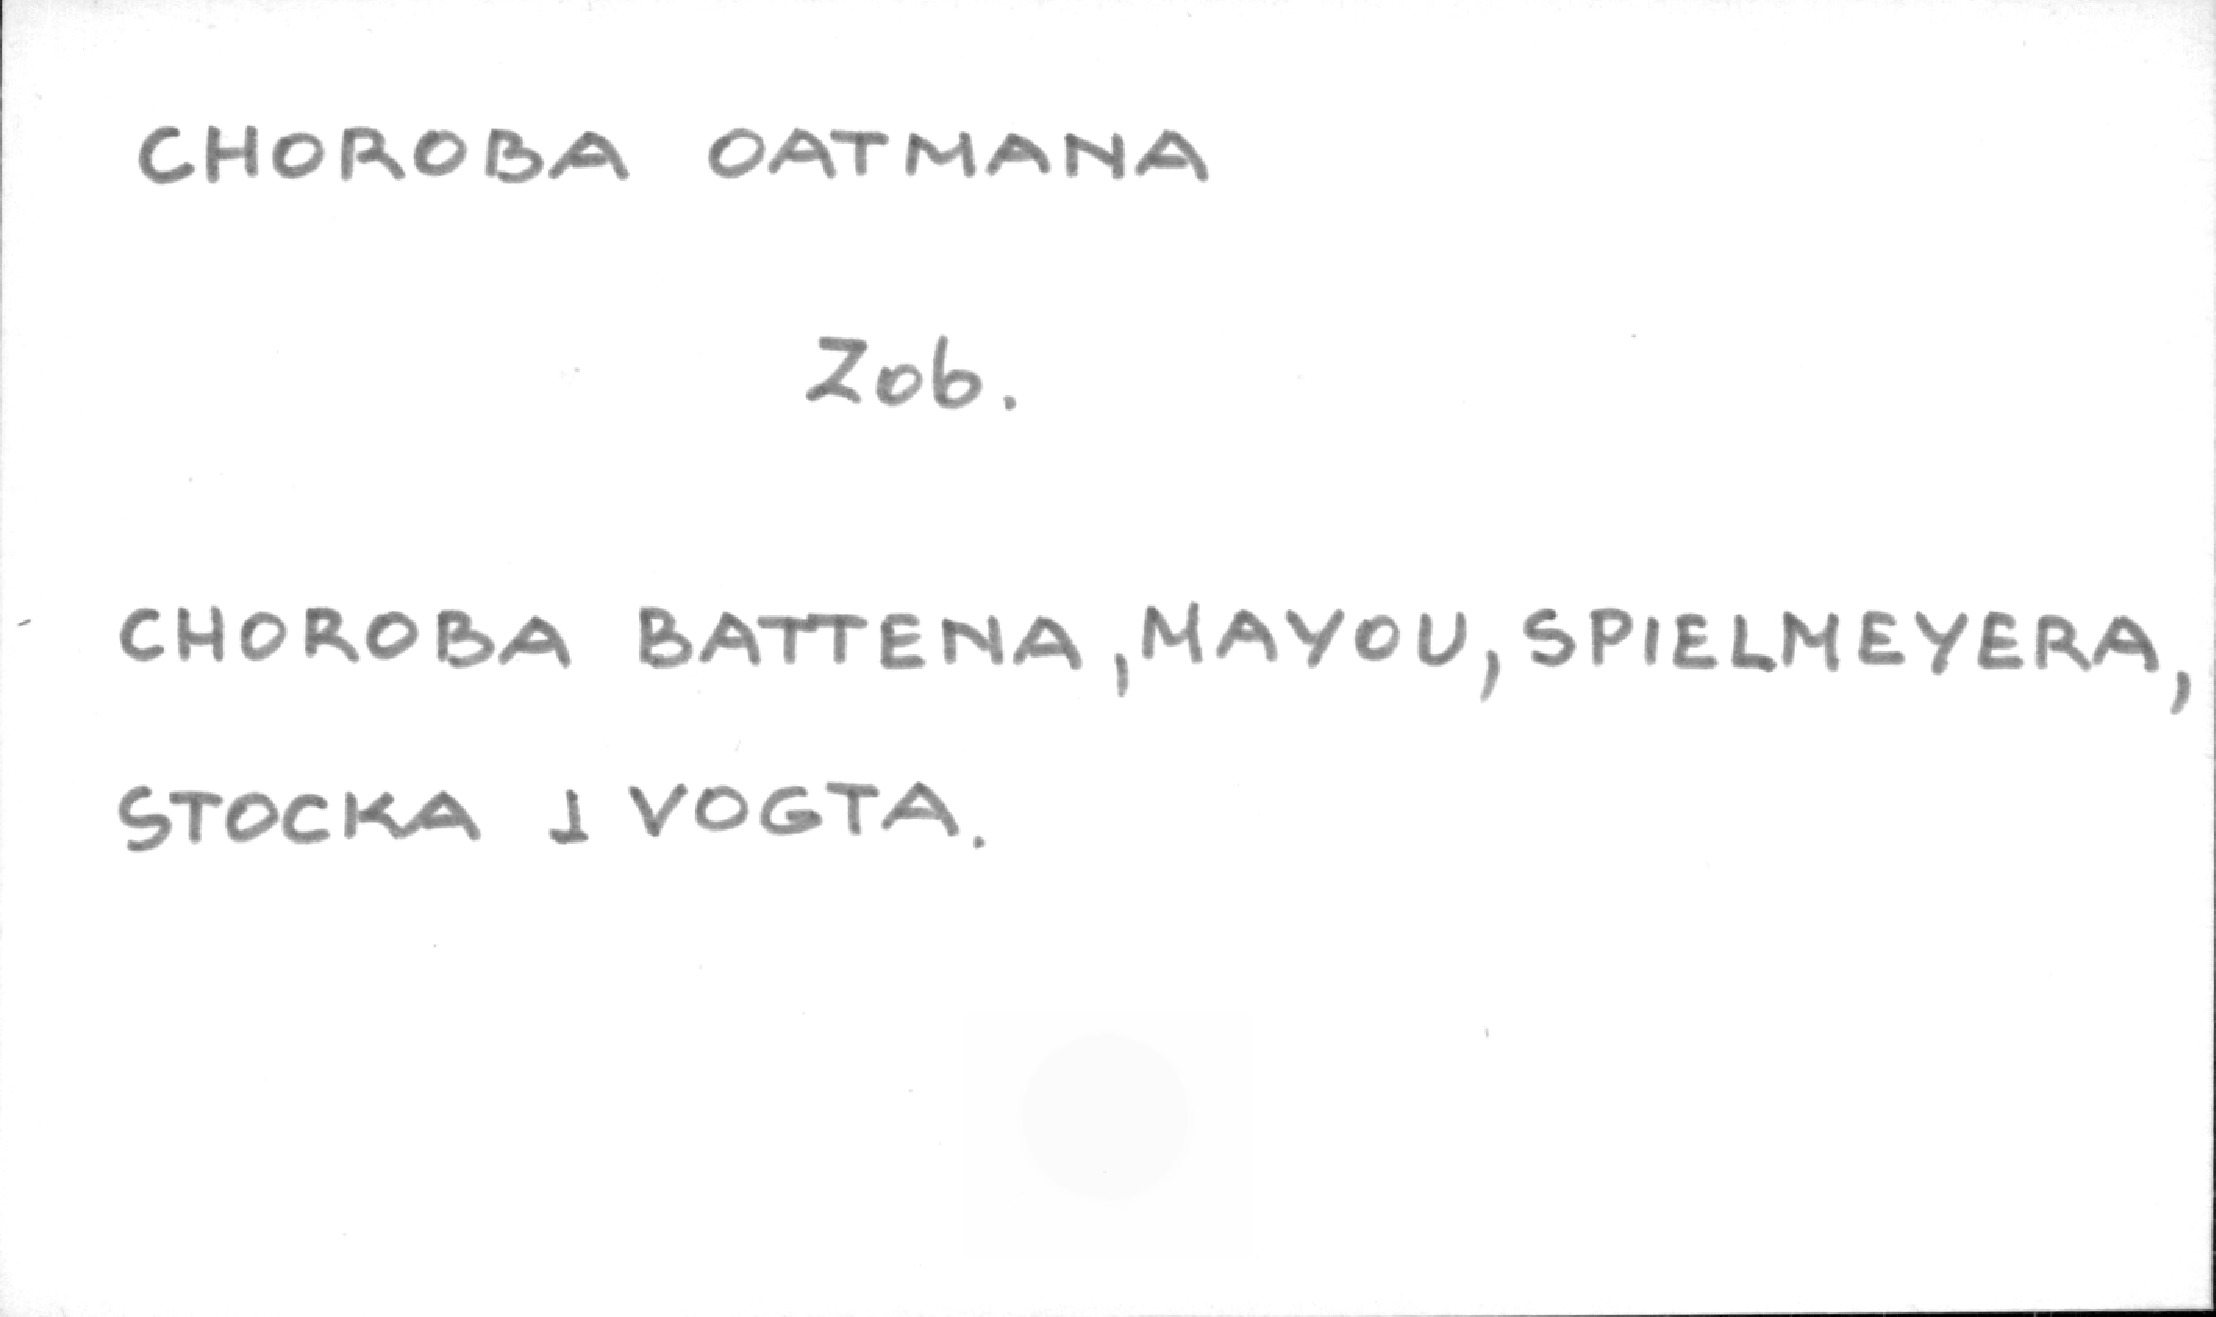 CHOROBA OATMANA
Zob.
CHOROBA BATTENA, MAYOU, SPIELMEYERA,
STOCKA I VOGTA.